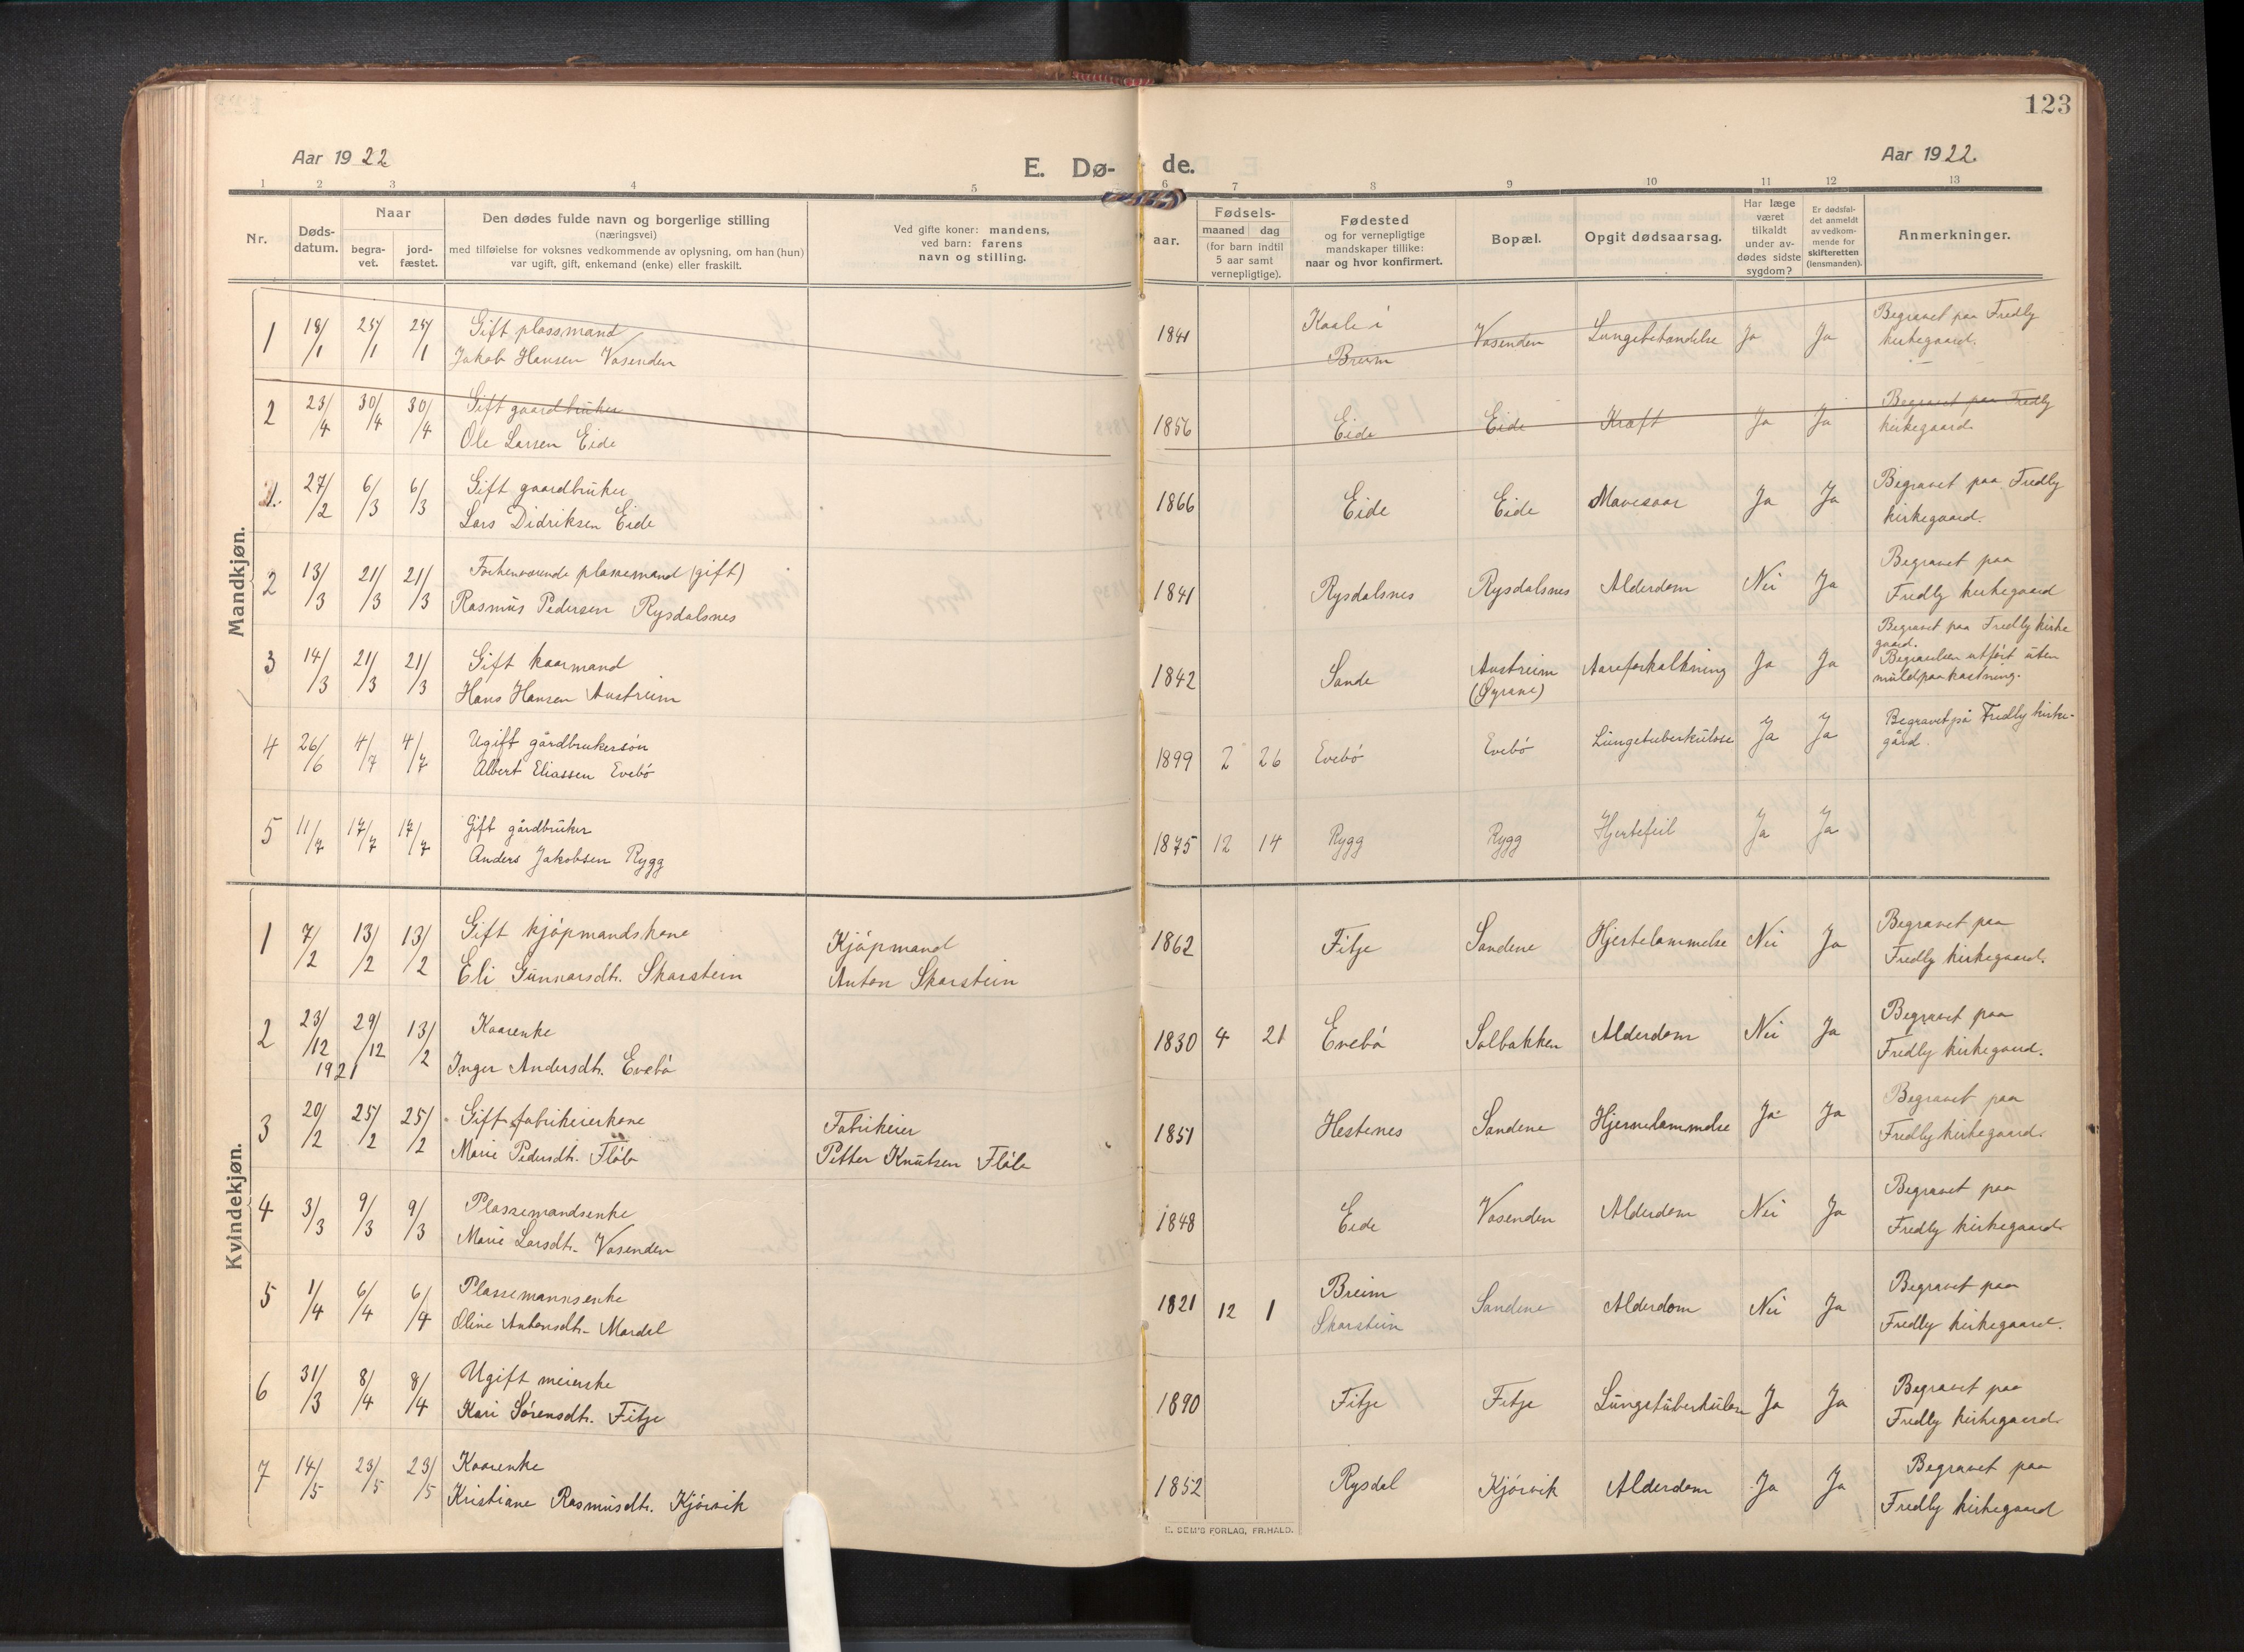 123
Aar 1922
E. Dø-
de.
Aar 1922.
1 2 3 4 5 6 7 8 9 10 11 12 13
Nr.
Døds-
datum.
Naar
begra-
vet.
jord-
fæstet.
Den dødes fulde navn og borgerlige stilling
(næringsvei)
med tilføielse for voksnes vedkommende av oplysning, om han (hun)
var ugift, gift, enkemand (enke) eller fraskilt.
Ved gifte koner: mandens,
ved barn: farens
navn og stilling.
aar.
Fødsels-
maaned dag
(for barn indtil
5 aar samt
vernepligtige).
Fødested
og for vernepligtige
mandskaper tillike:
naar og hvor konfirmert.
Bopæl.
Opgit dødsaarsag.
Har læge
været
tilkaldt
under av-
dødes sidste
sygdom?
Er dødsfal-
det anmeldt
av vedkom-
mende for
skifteretten
(lensmanden).
Anmerkninger.
Mandkjøn.
1 18/1 25/1 25/1 Gift plassmand
Jakob Hansen Vasenden
1841 Kaale i
Breim
Vasenden Lungebetændelse Ja Ja Begravet paa Fredly
kirkegaard.
2 23/4 30/4 30/4 Gift gaardbruker
Ole Larsen Eide
1856 Eide Eide Kræft Ja Ja Begravet paa Fredly
kirkegaard.
1. 27/2 6/3 6/3 Gift gaardbruker
Lars Didriksen Eide
1866 Eide Eide Mavesaar Ja Ja Begravet paa Fredly
kirkegaard.
2 13/3 21/3 21/3 Forhenværende plassemand (gift)
Rasmus Pedersen Rysdalsnes
1841 Rysdalsnes Rysdalsnes Alderdom Nei Ja Begravet paa
Fredly kirkegaard
3 14/3 21/3 21/3 Gift kaarmand
Hans Hansen Austreim
1842 Sande Austreim
(Øyrane)
Aareforkalkning Ja Ja Begravet paa Fredly kirke
gaard.
Begravelsen utført uten
muldpaakastning.
4 26/6 4/7 4/7 Ugift gårdbrukersøn
Albert Eliassen Evebø
1899 2 26 Evebø Evebø Lungetuberkulose Ja Ja Begravet på Fredly kirke-
gård.
5 11/7 17/7 17/7 Gift gårdbruker
Anders Jakobsen Rygg
1875 12 14 Rygg Rygg Hjertefeil Ja Ja
Kvindekjøn.
1 7/2 13/2 13/2 Gift kjøpmandskone
Eli Gunnarsdtr. Skarstein
Kjøpmand
Anton Skarstein
1862 Fitje Sandene Hjertelammelse Nei Ja Begravet paa
Fredly kirkegaard.
2 23/12 29/12 13/2 Kaarenke
1921
Inger Andersdtr. Evebø
1830 4 21 Evebø Solbakken Alderdom Nei Ja Begravet paa
Fredly kirkegaard.
3 20/2 25/2 25/2 Gift fabrikeierkone
Marie Pedersdtr. Fløle
Fabrikeier
Petter Knutsen Fløle
1851 Hestenes Sandene Hjernelammelse Ja Ja Begravet paa
Fredly kirkegaard.
4 3/3 9/3 9/3 Plassemandsenke
Marie Larsdtr. Vasenden
1848 Eide Vasenden Alderdom Nei Ja Begravet paa
Fredly kirkegaard.
5 1/4 6/4 6/4 Plassemannsenke
Oline Antonsdtr. Mardal
1821 12 1 Breim
Skarstein
Sandene Alderdom Nei Ja Begravet paa
Fredly kirkegaard.
6 31/3 8/4 8/4 Ugift meierske
Kari Sørensdtr. Fitje
1890 Fitje Fitje Lungetuberkulose Ja Ja Begravet paa
Fredly kirkegaard.
7 14/5 23/5 23/5 Kaarenke
Kristiane Rasmusdtr. Kjørvik
1852 Rysdal Kjørvik Alderdom Ja Ja Begravet paa
Fredly kirkegaard
E. SEM'S FORLAG, FR.HALD.